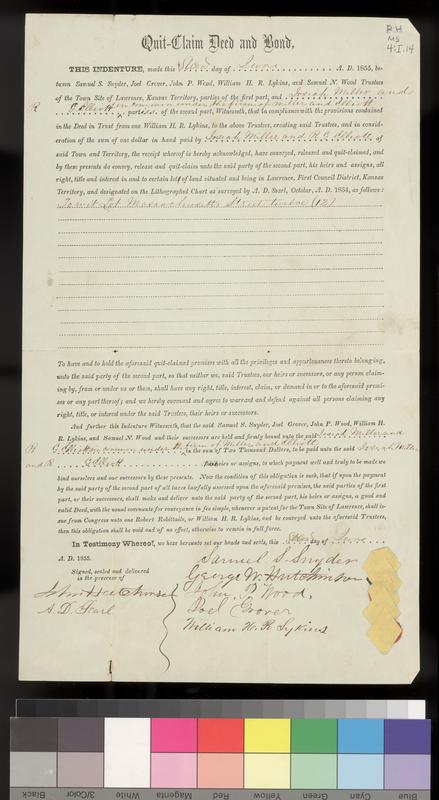 RH
MS
4:I.14
Quit-Claim Deed and Bond.
THIS INDENTURE, made this day of June A. D. 1855, be-
tween Samuel S. Snyder, Joel Grover, John P. Wood, William H. R. Lykins, and Samuel N. Wood Trustees
of the Town Site of Lawrence, Kansas Territory, parties of the first part, and Josiah Miller and
R G Elliott in common under the firm of Miller and Elliott
parties of the second part, Witnesseth, that in compliance with the provisions contained
in the Deed in Trust from one William H. R. Lykins, to the above Trustees, creating said Trust, and in consid-
eration of the sum of one dollar in hand paid by Josiah Miller and R. G. Elliott, of
said Town and Territory, the receipt whereof is hereby acknowledged, have conveyed, released and quit-claimed, and
by these presents do convey, release and quit-claim unto the said party of the second part, his heirs and assigns, all
right, title and interest in and to certain lot of land situated and being in Lawrence, First Council District, Kansas
Territory, and designated on the Lithographed Chart as surveyed by A. D. Searl, October, A. D. 1854, as follows:
Towit Lot Massachusetts Street twelve (12)
To have and to hold the aforesaid quit-claimed premises with all the privileges and appurtenances thereto belonging,
unto the said party of the second part, so that neither we, said Trustees, our heirs or successors, or any person claim-
ing by, from or under us or them, shall have any right, title, interest, claim, or demand in or to the aforesaid premi-
ses or any part thereof; and we hereby covenant and agree to warrant and defend against all persons claiming any
right, title, or interest under the said Trustees, their heirs or successors.
And further this Indenture Witnesseth, that the said Samuel S. Snyder, Joel Grover, John P. Wood, William H.
R. Lykins, and Samuel N. Wood and their successors are held and firmly bound unto the said Josiah Miller and
R G Elliott in common under the firm of Miller and Elliott
in the sum of Two Thousand Dollars, to be paid unto the said Josiah Miller
and R. G Elliott heirs or assigns, to which payment well and truly to be made we
bind ourselves and our successors by these presents. Now the condition of this obligation is such, that if upon the payment
by the said party of the second part of all taxes lawfully assessed upon the aforesaid premises, the said parties of the first
part, or their successors, shall make and deliver unto the said party of the second part, his heirs or assigns, a good and
valid Deed, with the usual covenants for conveyance in fee simple, whenever a patent for the Town Site of Lawrence, shall is-
sue from Congress unto one Robert Robitaille, or William H. R. Lykins, and be conveyed unto the aforesaid Trustees,
then this obligation shall be void and of no effect, otherwise to remain in full force.
In Testimony Whereof, we have hereunto set our hands and seals, this day of June
A. D. 1855.
Signed, sealed and delivered
in the presence of
Samuel S. Snyder
George W. Hutchinson
John Hutchinson
John P. Wood.
A. D. Searl
Joel Grover
William H. R Lykins
Black
3/Color
White
Magenta
Red
Yellow
Green
Cyan
Blue